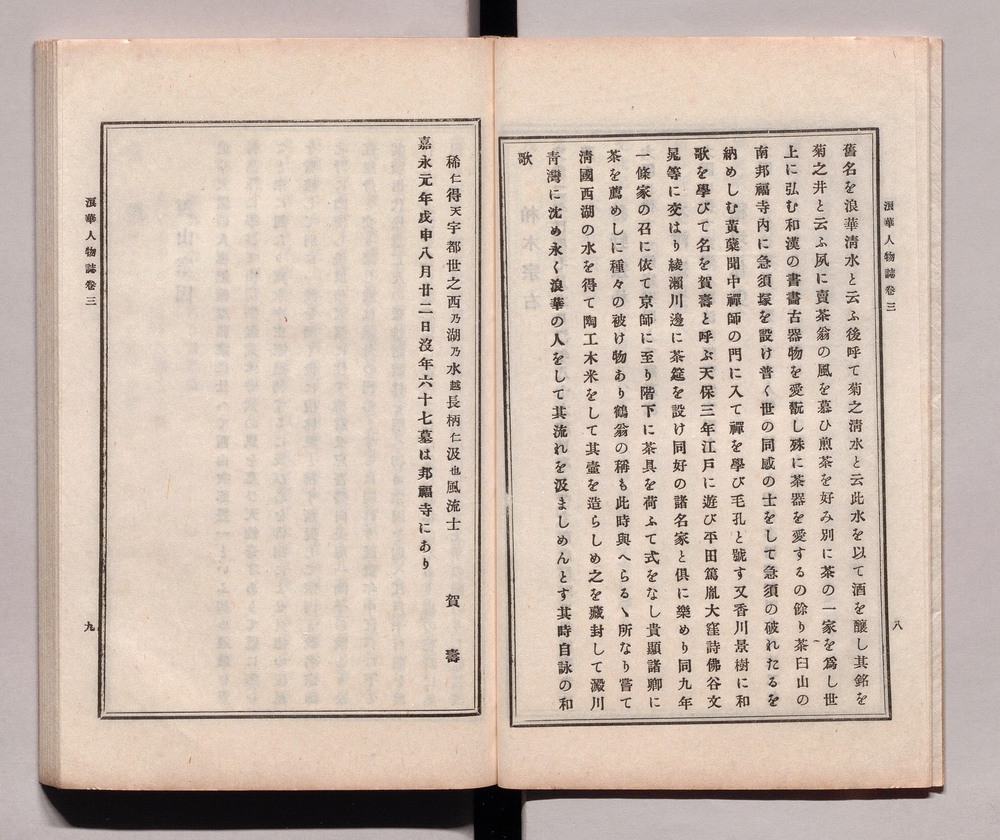 浪華人物誌卷三
八
舊名を浪華淸水と云ふ後呼て菊之淸水と云此水を以て酒を釀し其銘を
菊之井と云ふ夙に賣茶翁の風を慕ひ煎茶を好み別に茶の一家を爲し世
上に弘む和漢の書畫古器物を愛翫し殊に茶器を愛するの餘り茶臼山の
南邦福寺內に急須塚を設け普く世の同感の士をして急須の破れたるを
納めしむ黃蘗聞中禪師の門に入て禪を學び毛孔と號す又香川景樹に和
歌を學びて名を賀壽と呼ぶ天保三年江戶に遊び平田篤胤大窪詩佛谷文
晁等に交はり綾瀨川邊に茶筵を設け同好の諸名家と俱に樂めり同九年
一條家の召に依て京師に至り階下に茶具を荷ふて式をなし貴顯諸卿に
茶を薦めしに種々の被け物あり鶴翁の稱も此時與へらるゝ所なり嘗て
淸國西湖の水を得て陶工木米をして其壺を造らしめ之を藏封して澱川
靑灣に沈め永く浪華の人をして其流れを汲ましめんとす其時自詠の和
歌
稀仁得天宇都世之西乃湖乃水越長柄仁汲也風流士　賀壽
嘉永元年戊申八月廿二日沒年六十七墓は邦福寺にあり
浪華人物誌卷三
九